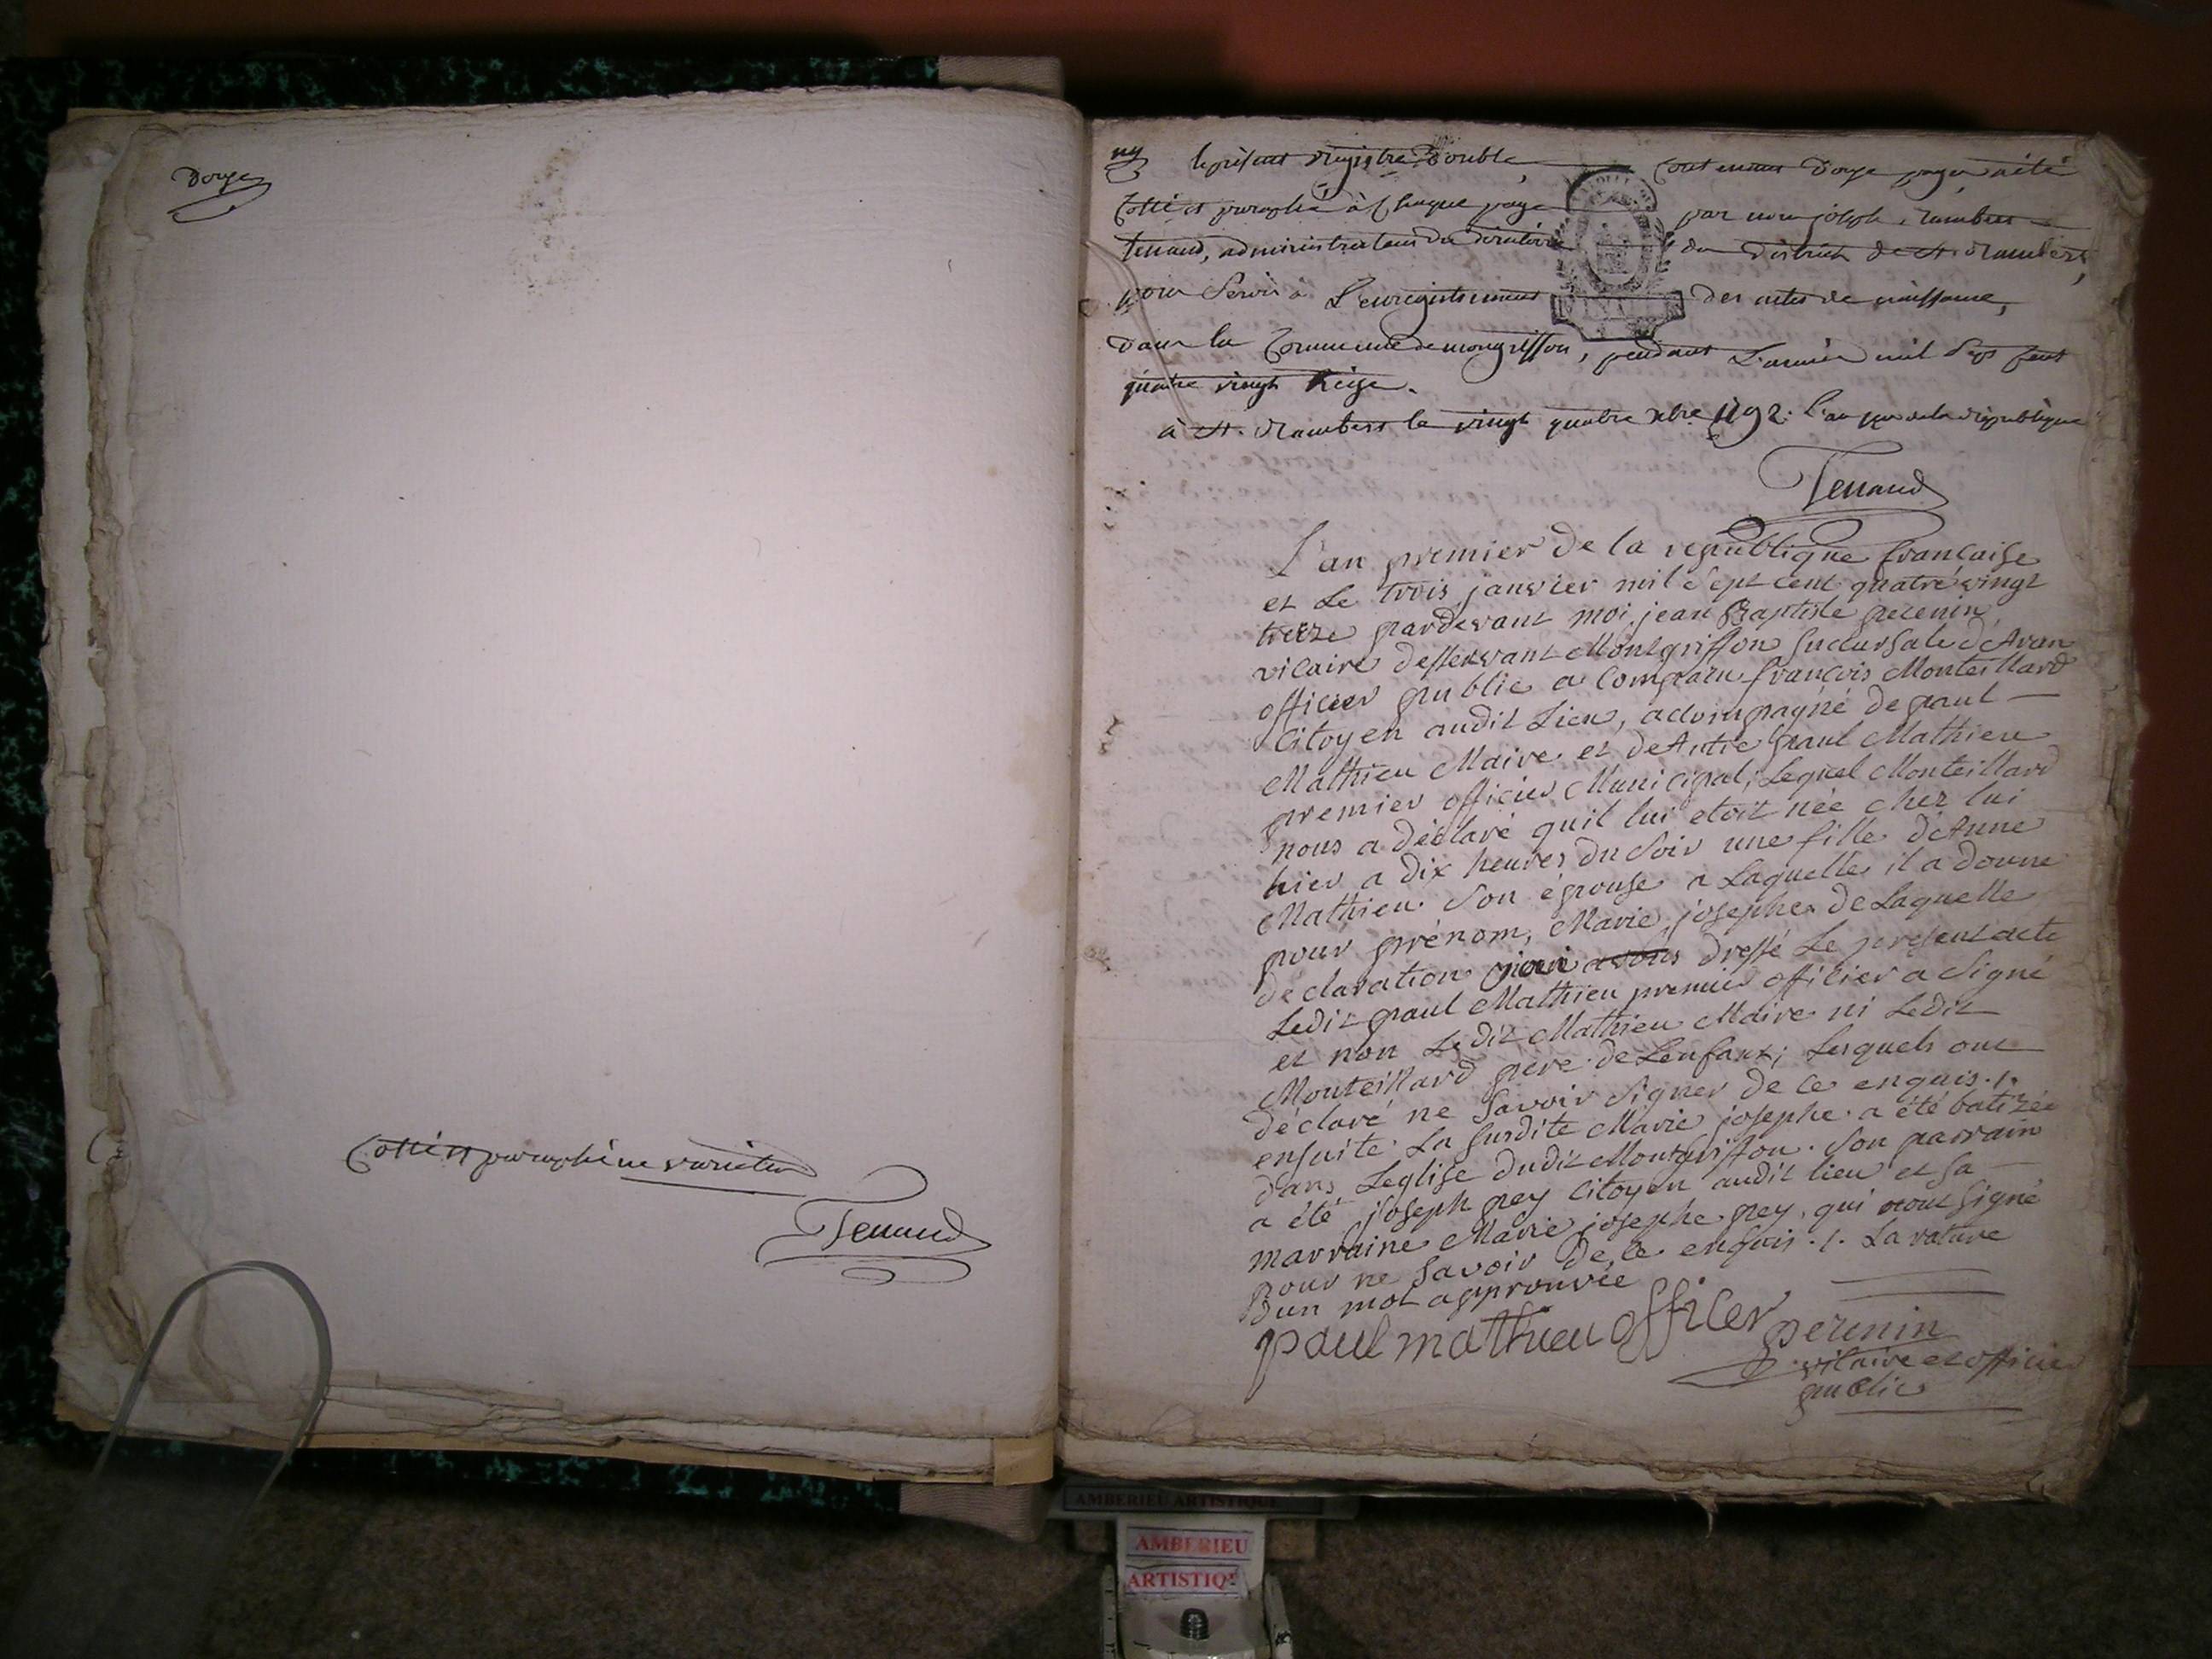 Douze
Cotté et paraphé ne varietur
Tenand
un
le présent registre double, Contenant Douze pages a été
Cotté et paraphé à Chaque page par nous joseph, rambert
Tenand, administrateur du directoire du District de St. Rambert,
pour Servir à L'enregistrement Des actes de naissance,
dans la Commune de mongriffon, pendant L'année mil Sept Cent
quatre vingt treize.
à St. Rambert le vingt quatre xbre 1792. L'an 1er de la république
Tenand
L'an premier De la republique francaise
et Le trois janvier mil Sept cent quatre vingt
treize pardevant moi jean Baptiste perenin
vicaire desservant Montgriffon Succursale d'Aran
officier public a Comparu francois Monteillard
Citoyen audit Lieu, accompagné de paul
Mathieu Maire et de Autre paul Mathieu
premier officier Municipal; Lequel Monteillard
nous a déclaré quil lui etoit née chez lui
hier a dix heures du Soir une fille d'Anne
Mathieu Son épouse a Laquelle il a donné
pour prénom, Marie josephe. de Laquelle
declaration avons dressé Le present acte
Ledit paul Mathieu premier officier a Signé
et non Le dit Mathieu Maire ni Ledit
Monteillard pere de Lenfant; Lesquels ont
déclaré ne Savoir Signer de ce enquis ./.
ensuite La Susdite Marie josephe a été batizée
dans Leglise dudit Montgriffon. Son parrain
a été joseph pey Citoyen audit lieu et Sa
marraine Marie josephe pey, qui nont Signé
pour ne Savoir De ce enquis ./. La rature
Dun mot approuvée
paul mathieu officer
perenin
vicaire et officier
public
AMBERIEU ARTISTIQUE
AMBERIEU
ARTISTIQ